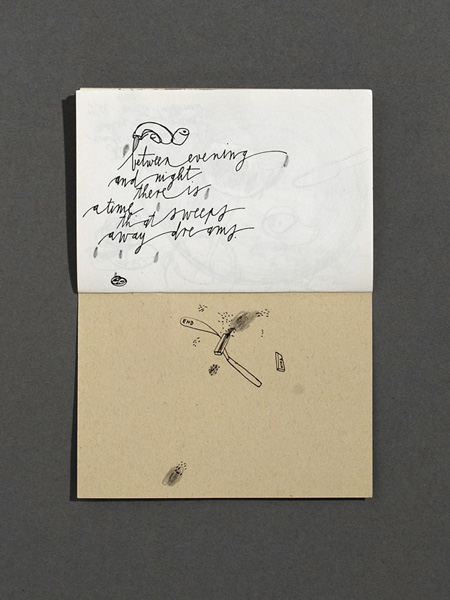 between evening
and night
there is
a time
that sweeps
away dreams.
END